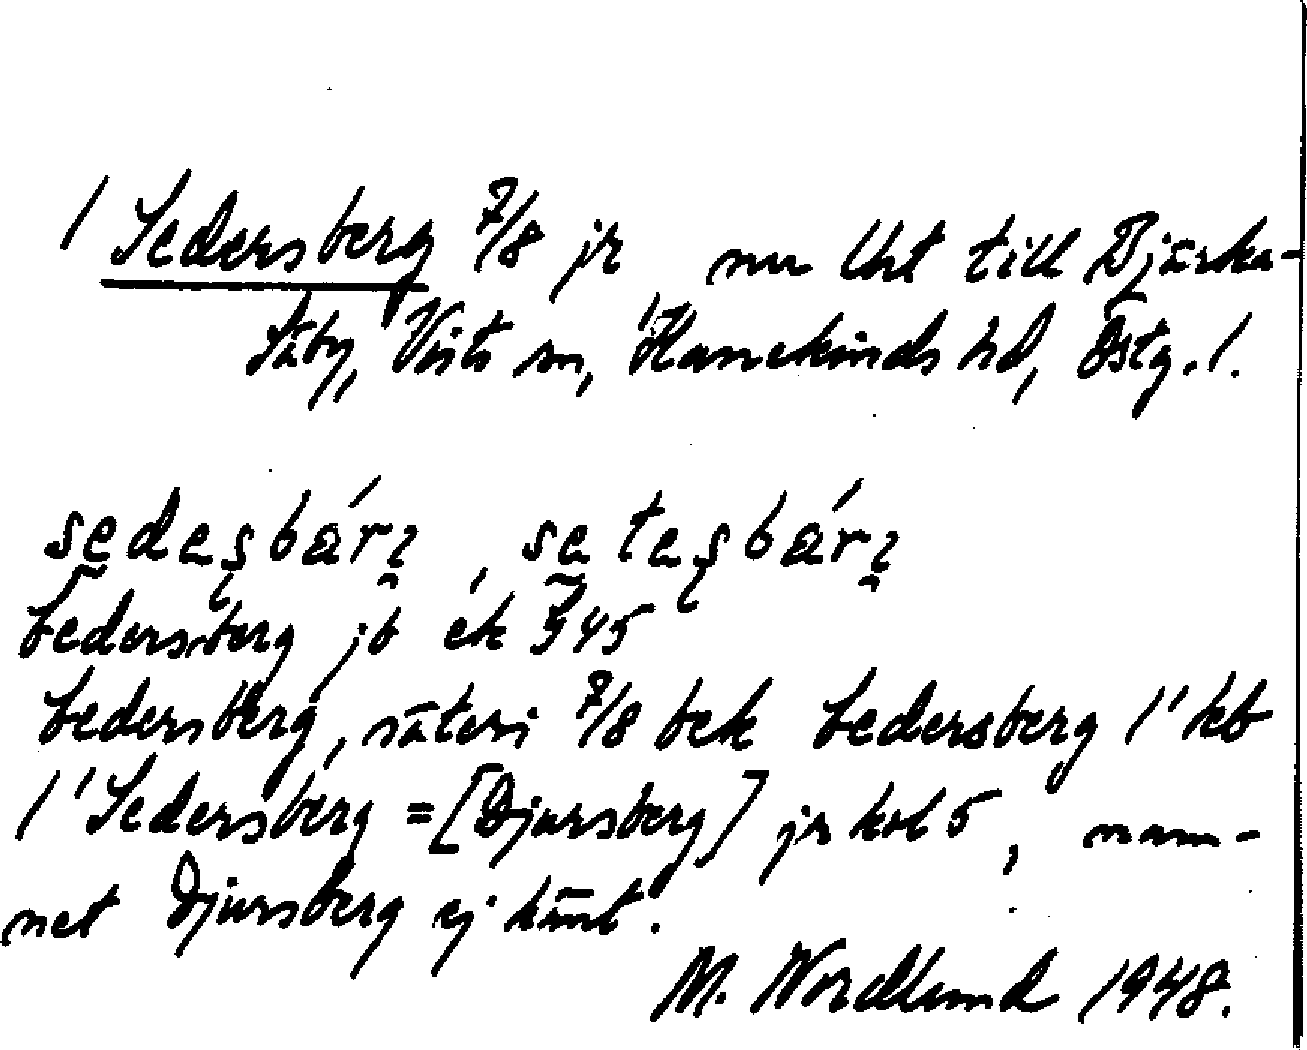 / Sedersberg 7/8 jr nu Uht till Bjärka-
Säby, Vists sn, Hanekinds hd, Östg. l.
sedeṣbárꝛ, seteṣbárꝛ
Sedersberg jb ek § 45
Sedersberg, säteri 7/8 bek Sedersberg l' kb
l' Sedersberg = [Djursberg] jr kol 5, nam-
net Djursberg ej känt.
M. Nordlund 1948.